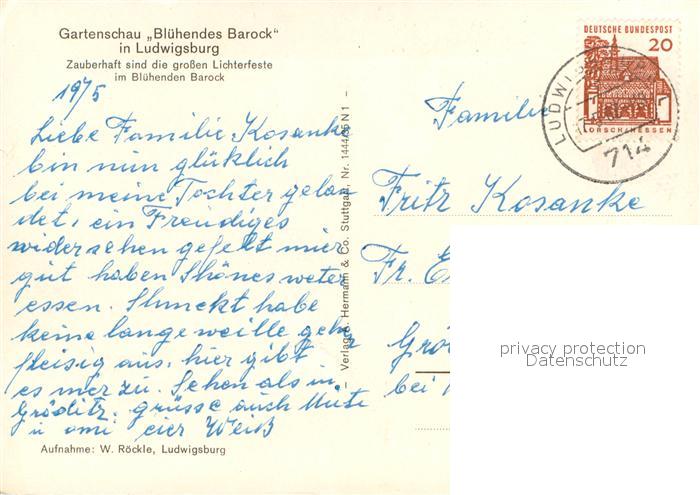 Gartenschau „Blühendes Barock"
in Ludwigsburg
Zauberhaft sind die großen Lichterfeste
im Blühenden Barock
19/5
Liebe Familie Kosanke
bin nun glücklich
bei meine Tochter gelan
det, ein Freudiges
widersehen gefellt mier
gut haben Shönes weter
essen. Shmekt habe
keine langeweille gehe
fleisig aus, hier gibt
es mer zu. Sehen als in
Gröditz. grüsse auch Mute
u omi eier Weiß
Aufnahme: W. Röckle, Ludwigsburg
Verlag G. Hermann & Co. Stuttgart, Nr. N 1 –
DEUTSCHE BUNDESPOST
20
LORSCH/HESSEN
LUDWIGSBURG
714
Familie
Fritz Kosanke
Fr.
Grö
bei
privacy protection
Datenschutz